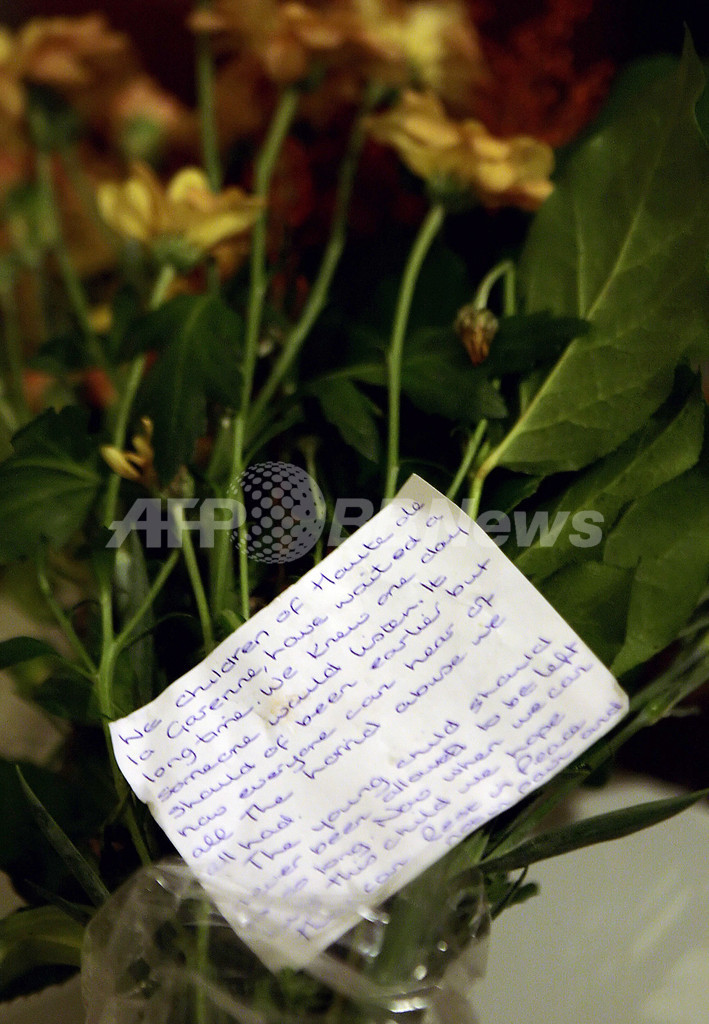 AFP BB News
We children of Haute de
la Garenne, have waited a
long time. We knew one day
someone would listen. It
should of been earlier but
now everyone can hear of
all the horrid abuse we
all had.
The young child should
never been allowed to be left
so long. Now when we can
this child we hope
can Rest in Peace
and